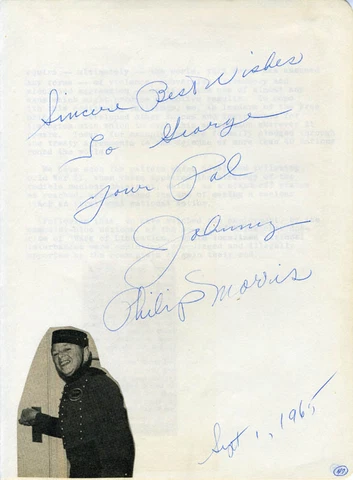 Sincere Best Wishes
To George
Your Pal
Johnny
Philip Morris
Sept 1, 1965